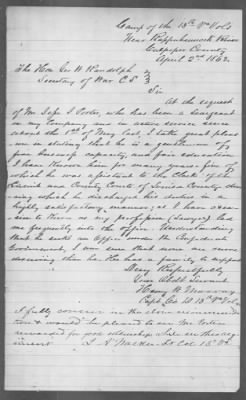 Camp of the 13th Va Vols
Near Rappahannock River
Culpeper County
April 2nd 1862.
The Hon Geo W Randolph
Secretary of War C.S.
Sir
At the request
of Mr Sepn J. Porter, who has been a Sergeant
in my Company and in active service since
about the 1st of May last, I take great pleasure
in stating that he is a gentleman of
fine business capacity, and fair education.
I have known him for many years, five of
which he was assistant to the Clerk of the
Circuit and County Courts of Louisa County, during
which he discharged his duties in a
highly satisfactory manner; as I have reason
to know as my profession (Lawyer) led
me frequently into the office. Understanding
that he seeks an office under the Confederate
Government, I am sure that none are more
deserving than he. He has a family to support
Very Respectfully
Your Obdt Servant
Henry W
Capt. Co D 13 Va Vols
I fully concur in the above recommendation
& would be pleased to see Mr Porter
rewarded for good soldiership while in this regiment
J. A. Walker Lt Col 13th Va